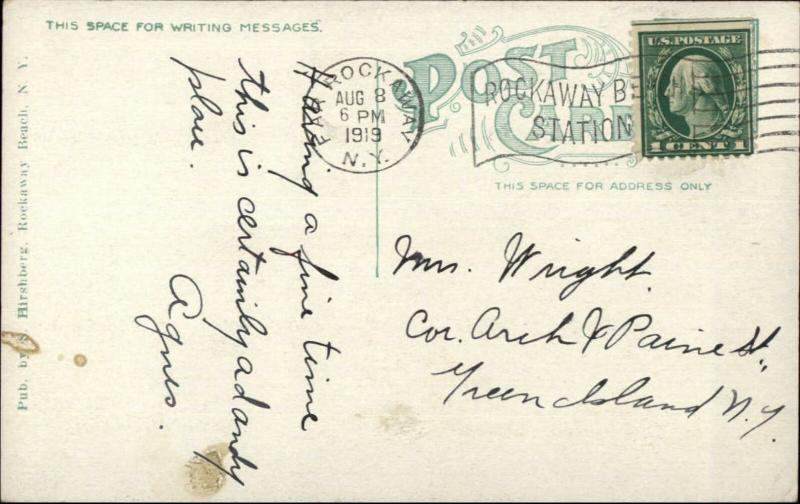 THIS SPACE FOR WRITING MESSAGES.
Having a fine time
this is certainly a dandy
place.
Agnes.
Pub. by S. Hirshberg, Rockaway Beach, N. Y.
POST CARD
FAR ROCKAWAY
AUG 8
6 PM
1919
N.Y.
ROCKAWAY B
STATION
U.S. POSTAGE
1 CENT 1
THIS SPACE FOR ADDRESS ONLY
Mrs. Wright.
Cor. Arch & Paine St.
Green Island N.Y.